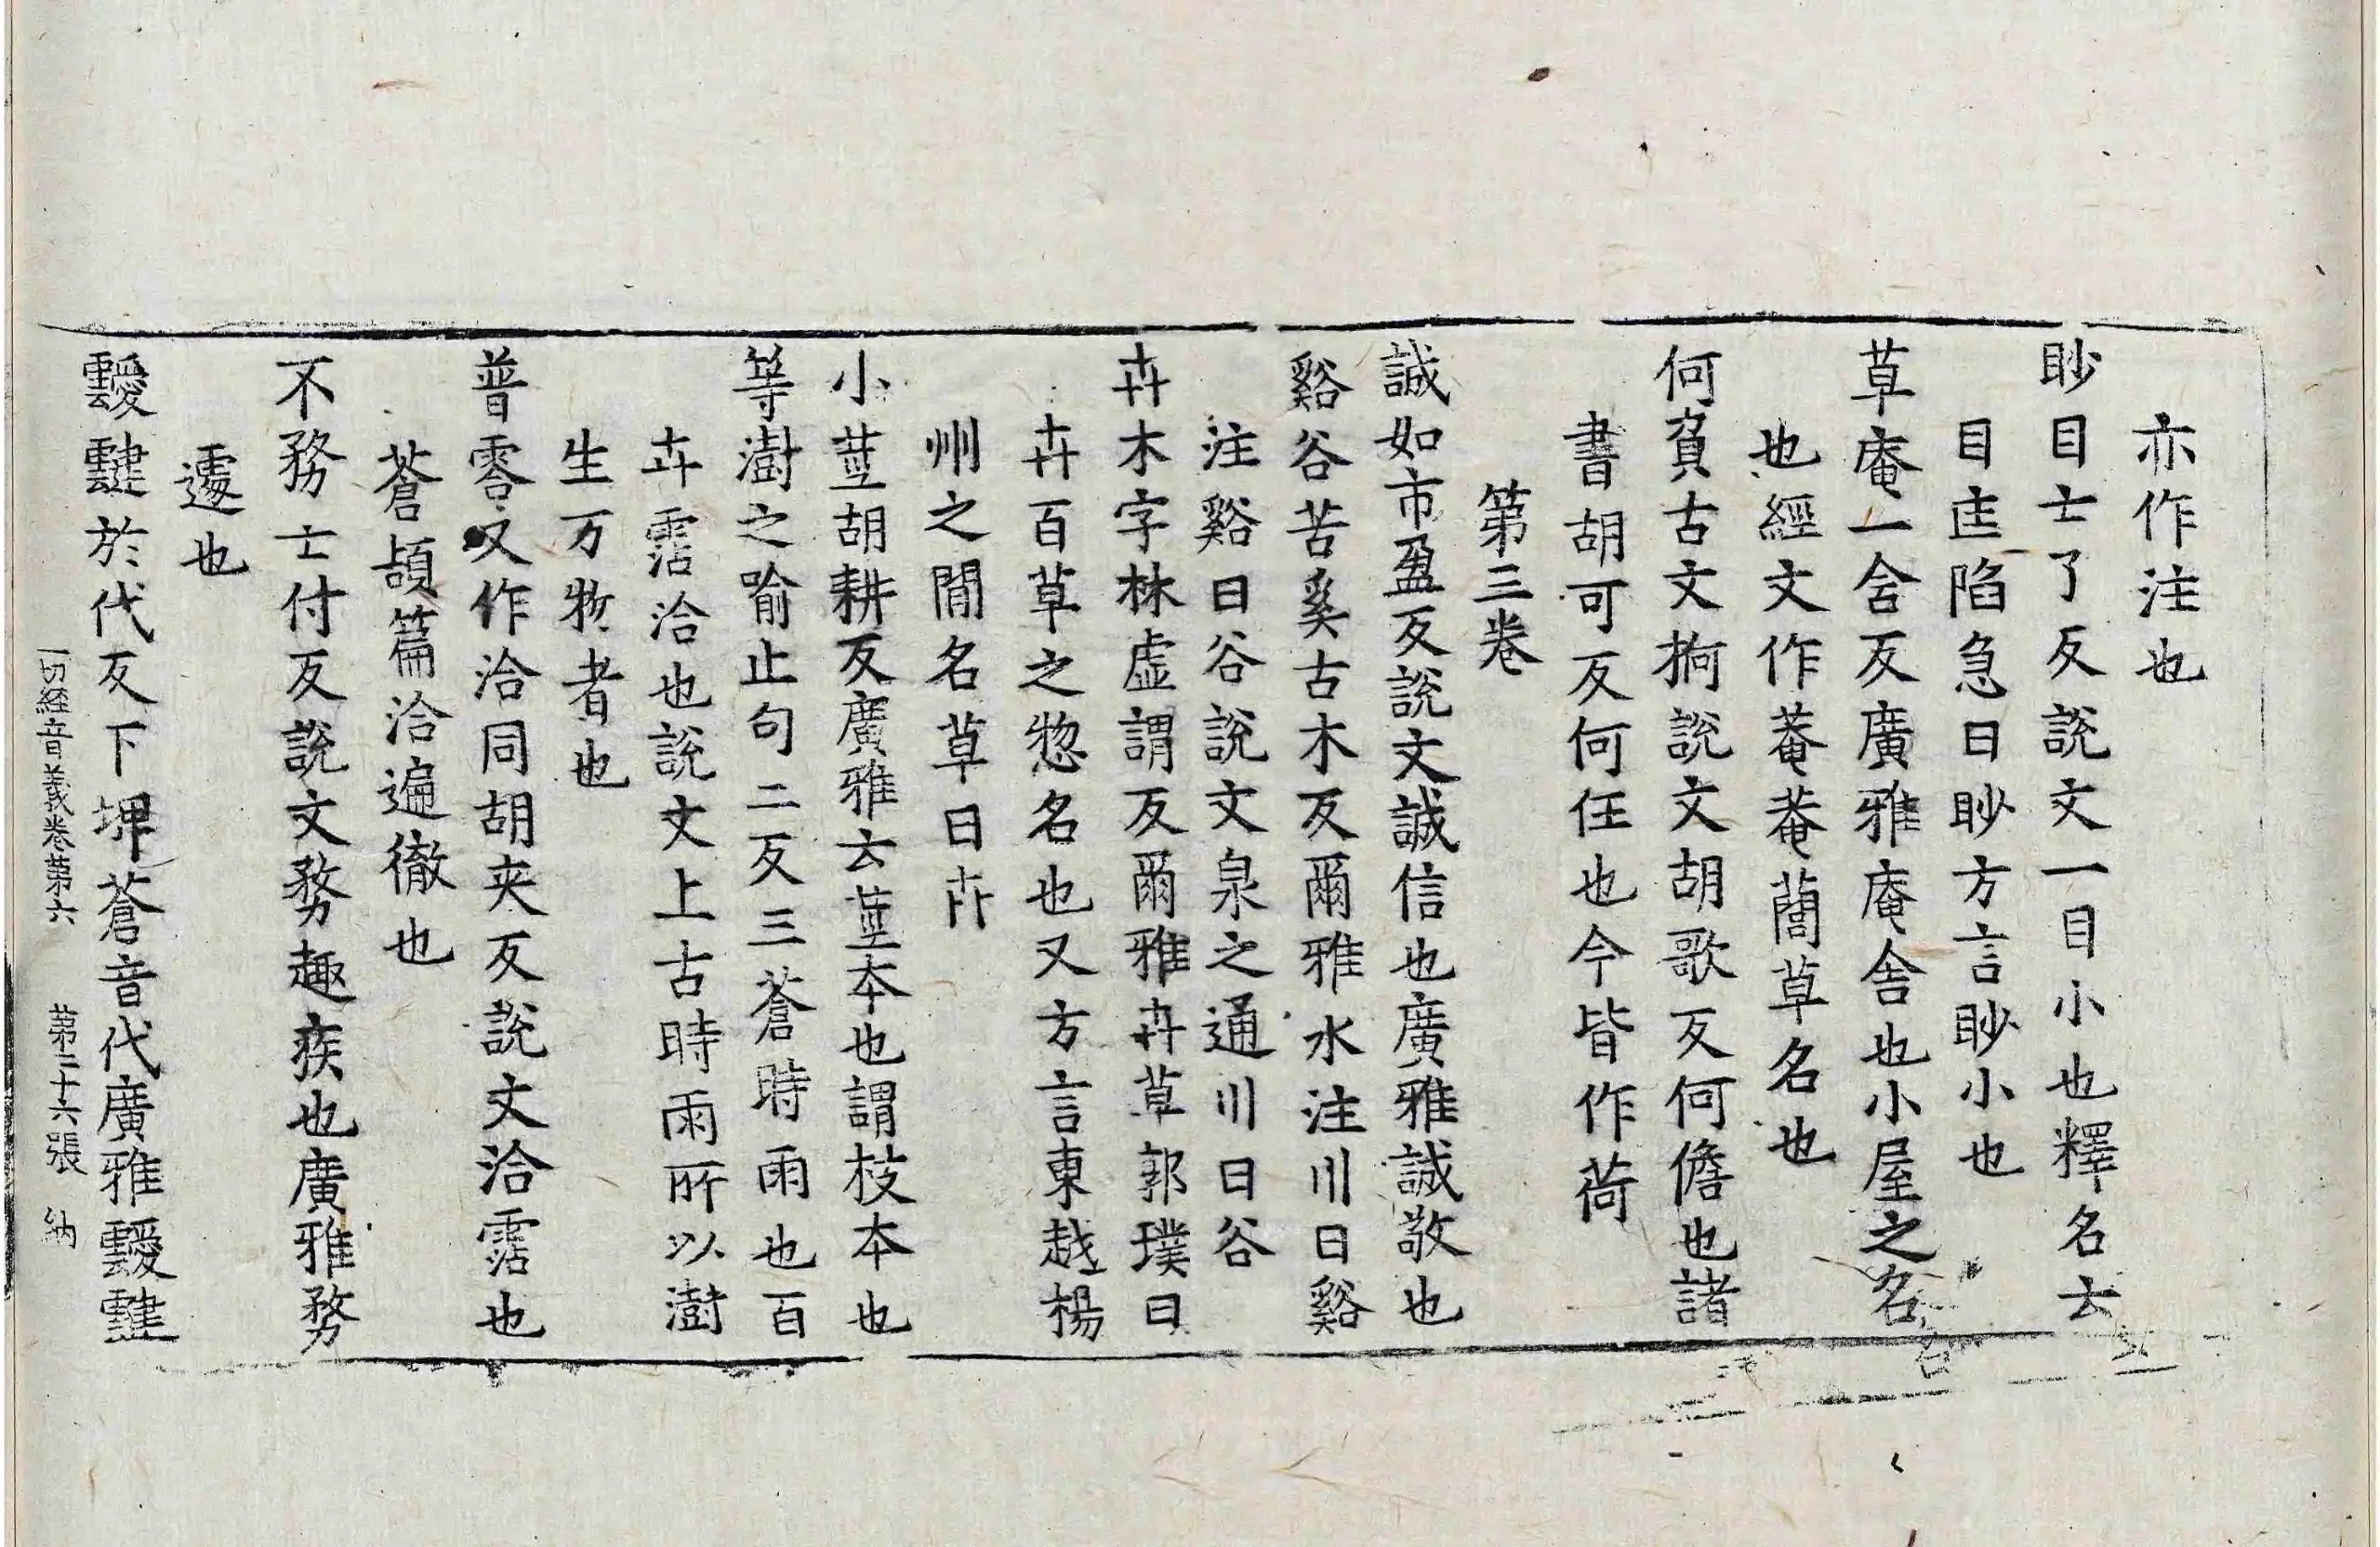 亦作注也
眇目士了反說文一目小也釋名云
目匡陷急曰眇方言眇小也
草庵一舍反廣雅庵舍也小屋之名
也經文作菴菴䕡草名也
何負古文抲說文胡歌反何儋也諸
書胡可反何任也今皆作荷
第三卷
誠如市盈反說文誠信也廣雅誠敬也
谿谷苦奚古木反爾雅水注川曰谿
注谿曰谷說文泉之通川曰谷
卉木字林虛謂反爾雅卉草郭璞曰
卉百草之惣名也又方言東越楊
州之閒名草曰卉
小莖胡耕反廣雅云莖本也謂枝本也
等澍之喻止句二反三蒼時雨也百
卉霑洽也說文上古時雨所以澍
生万物者也
普霑又作洽同胡夾反說文洽霑也
蒼頡篇洽遍徹也
不務士付反說文務趣疾也廣雅務
遽也
靉靆於代反下埤蒼音代廣雅靉靆
一切經音義卷第六 第二十六張 納